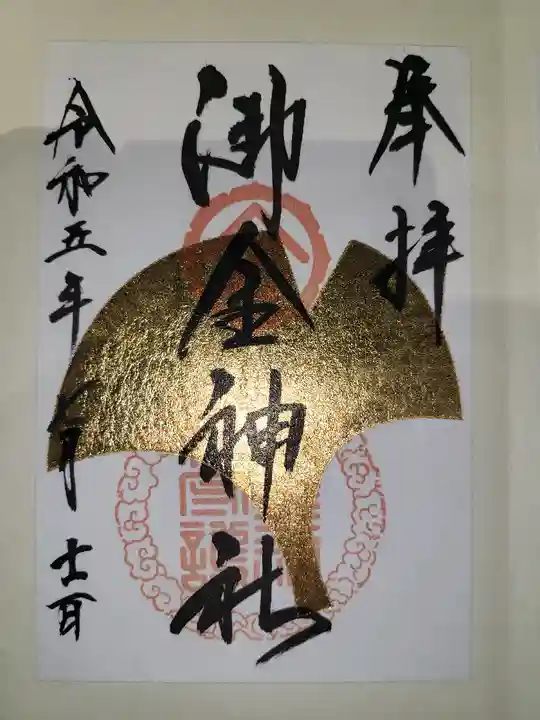 奉拝
御金神社
令和五年七月十一日